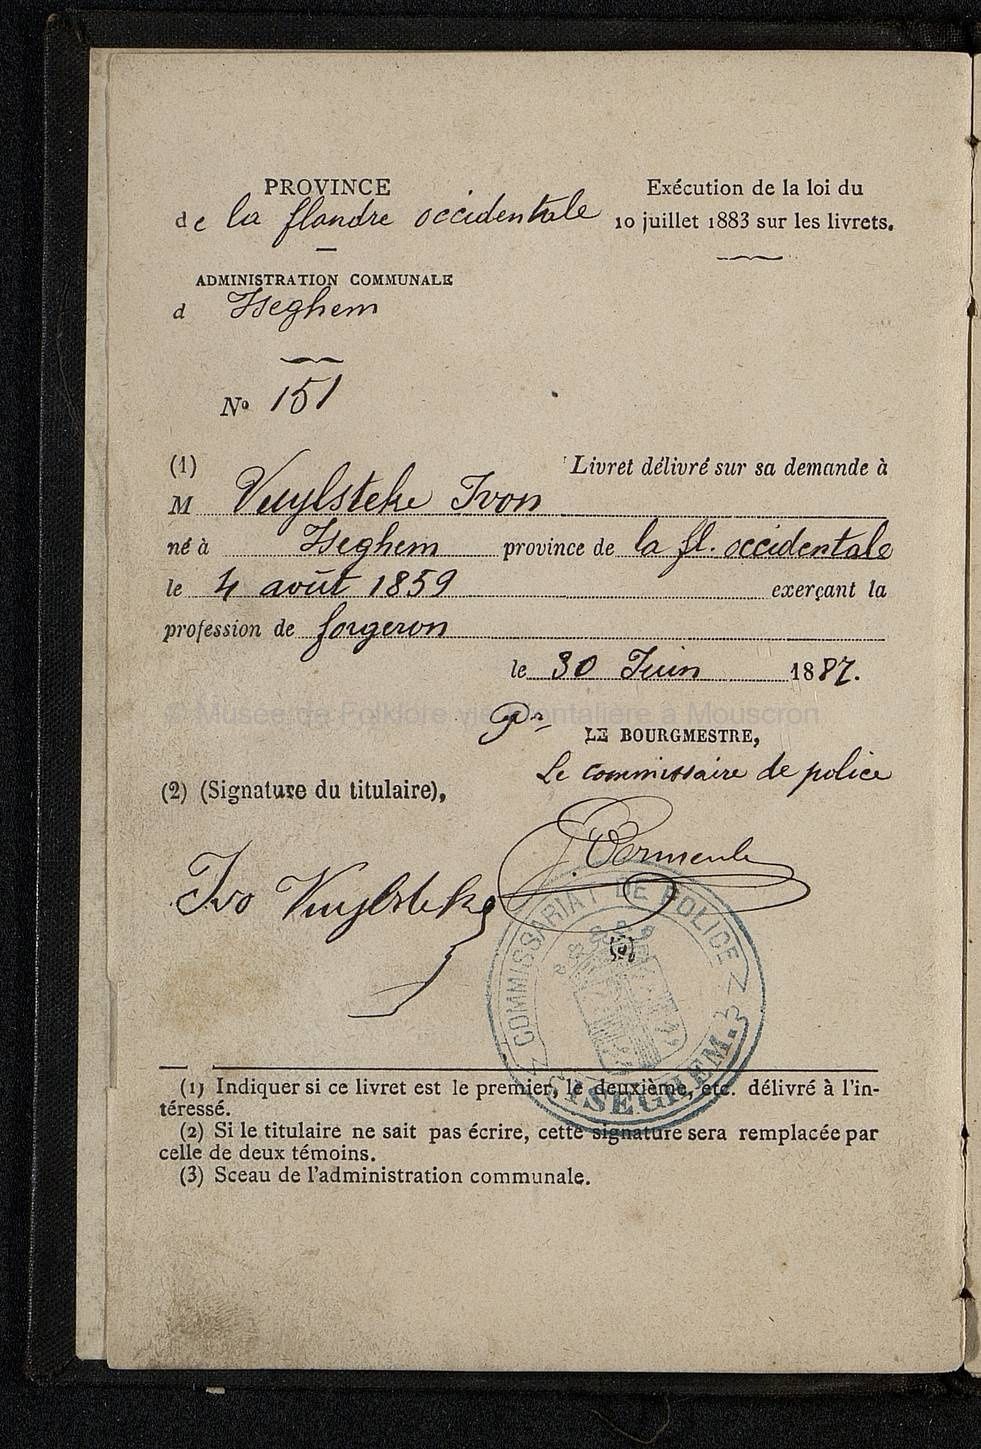 PROVINCE
de la flandre occidentale
Exécution de la loi du
10 juillet 1883 sur les livrets.
ADMINISTRATION COMMUNALE
d Iseghem
No 151
(1) Livret délivré sur sa demande à
M Vuylsteke Ivon
né à Iseghem province de la fl. occidentale
le 4 août 1859 exerçant la
profession de forgeron
le 30 Juin 1887.
© Musée de Folklore vie frontalière à Mouscron
Pr
LE BOURGMESTRE,
Le commissaire de police
(2) (Signature du titulaire),
Ivo Vuylsteke
COMMISSARIAT DE POLICE
ISEGHEM.
(1) Indiquer si ce livret est le premier, le deuxième, etc. délivré à l'in-
téressé.
(2) Si le titulaire ne sait pas écrire, cette signature sera remplacée par
celle de deux témoins.
(3) Sceau de l'administration communale.